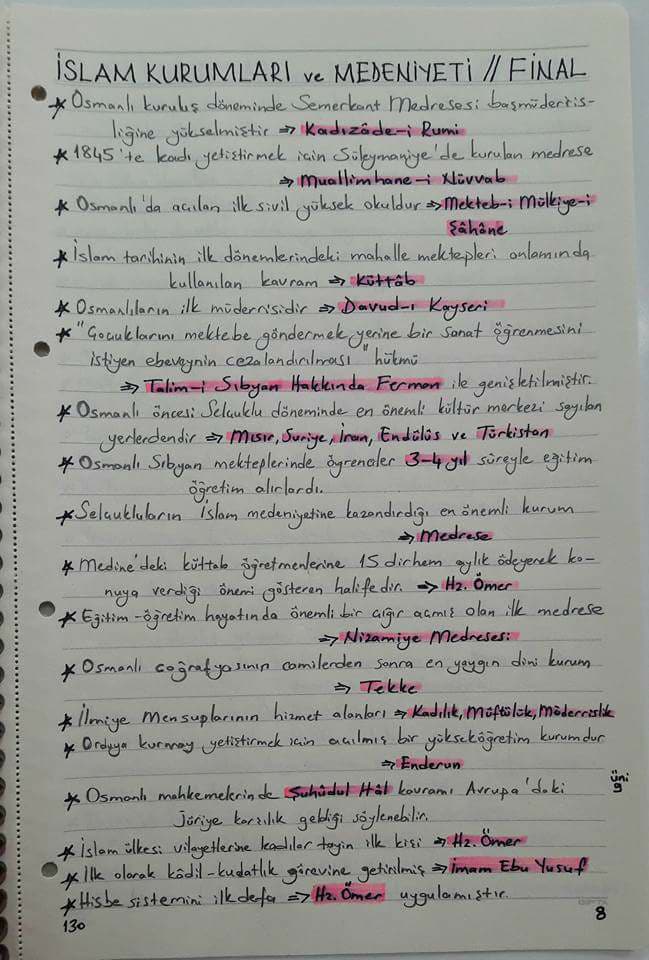 İSLAM KURUMLARI ve MEDENİYETİ // FİNAL
* Osmanlı kuruluş döneminde Semerkant Medresesi başmüderris-
liğine yükselmiştir ⇒ Kadızâde-i Rumi
* 1845'te kadı yetiştirmek için Süleymaniye'de kurulan medrese
⇒ Muallimhane-i Nüvvab
* Osmanlı'da açılan ilk sivil yüksek okuldur ⇒ Mekteb-i Mülkiye-i
Şâhâne
* İslam tarihinin ilk dönemlerindeki mahalle mektepleri anlamında
kullanılan kavram ⇒ Küttâb
* Osmanlıların ilk müderrisidir ⇒ Davud-ı Kayseri
* "Çocuklarını mektebe göndermek yerine bir sanat öğrenmesini
istiyen ebeveynin cezalandırılması" hükmü
⇒ Talim-i Sıbyan Hakkında Ferman ile genişletilmiştir.
* Osmanlı öncesi Selçuklu döneminde en önemli kültür merkezi sayılan
yerlerdendir ⇒ Mısır, Suriye, İran, Endülüs ve Türkistan
* Osmanlı Sıbyan mekteplerinde öğrenciler 3-4 yıl süreyle eğitim
öğretim alırlardı.
* Selçukluların İslam medeniyetine kazandırdığı en önemli kurum
⇒ Medrese
* Medine'deki küttab öğretmenlerine 15 dirhem aylık ödeyerek ko-
nuya verdiği önemi gösteren halifedir. ⇒ Hz. Ömer
* Eğitim-öğretim hayatında önemli bir çığır açmış olan ilk medrese
⇒ Nizamiye Medresesi
* Osmanlı coğrafyasının camilerden sonra en yaygın dini kurum
⇒ Tekke
* İlmiye mensuplarının hizmet alanları ⇒ Kadılık, Müftülük, Müderrislik
* Orduya kurmay yetiştirmek için açılmış bir yükseköğretim kurumdur
⇒ Enderun
* Osmanlı mahkemelerinde Şuhûdul Hâl kavramı Avrupa'daki
Jüriye karşılık geldiği söylenebilir.
üni
9
* İslam ülkesi vilayetlerine kadılar tayin ilk kişi ⇒ Hz. Ömer
* İlk olarak kâdil-kudatlık görevine getirilmiş ⇒ İmam Ebu Yusuf
* Hisbe sistemini ilk defa ⇒ Hz. Ömer uygulamıştır.
130
8